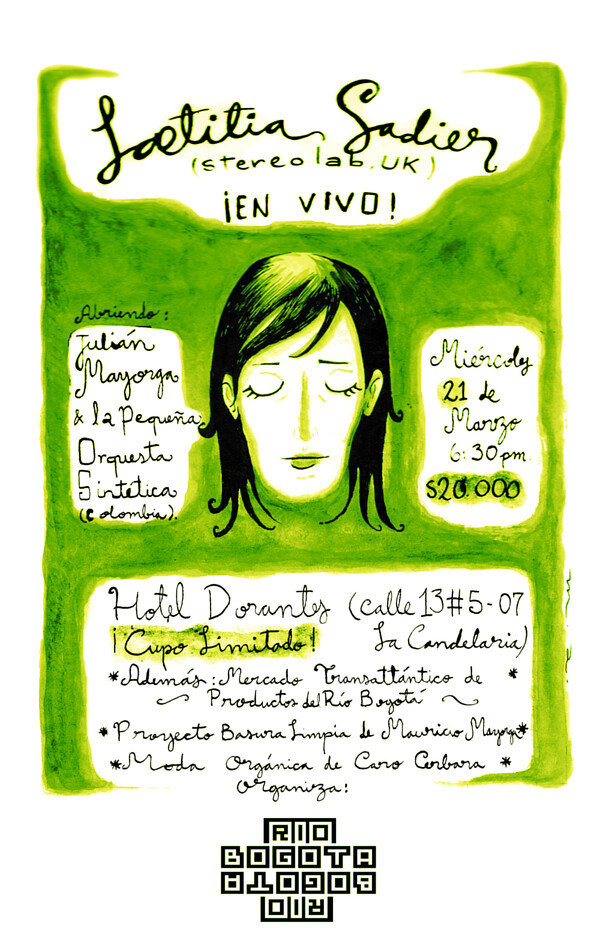 Lætitia Sadier
(stereolab.UK)
¡EN VIVO!
Abriendo:
Julián
Mayorga
& la Pequeña
Orquesta
Sintética
(Colombia).
Miércoles
21 de
Marzo
6:30pm
$20.000
Hotel Dorantes (calle 13#5-07
¡Cupo Limitado! La Candelaria)
*Además: Mercado Transatlántico de *
Productos del Río Bogotá
*Proyecto Basura Limpia de Mauricio Mayorga*
*Moda Orgánica de Caro Cerbara *
Organiza:
RIO
BOGOTA
BOGOTA
RIO